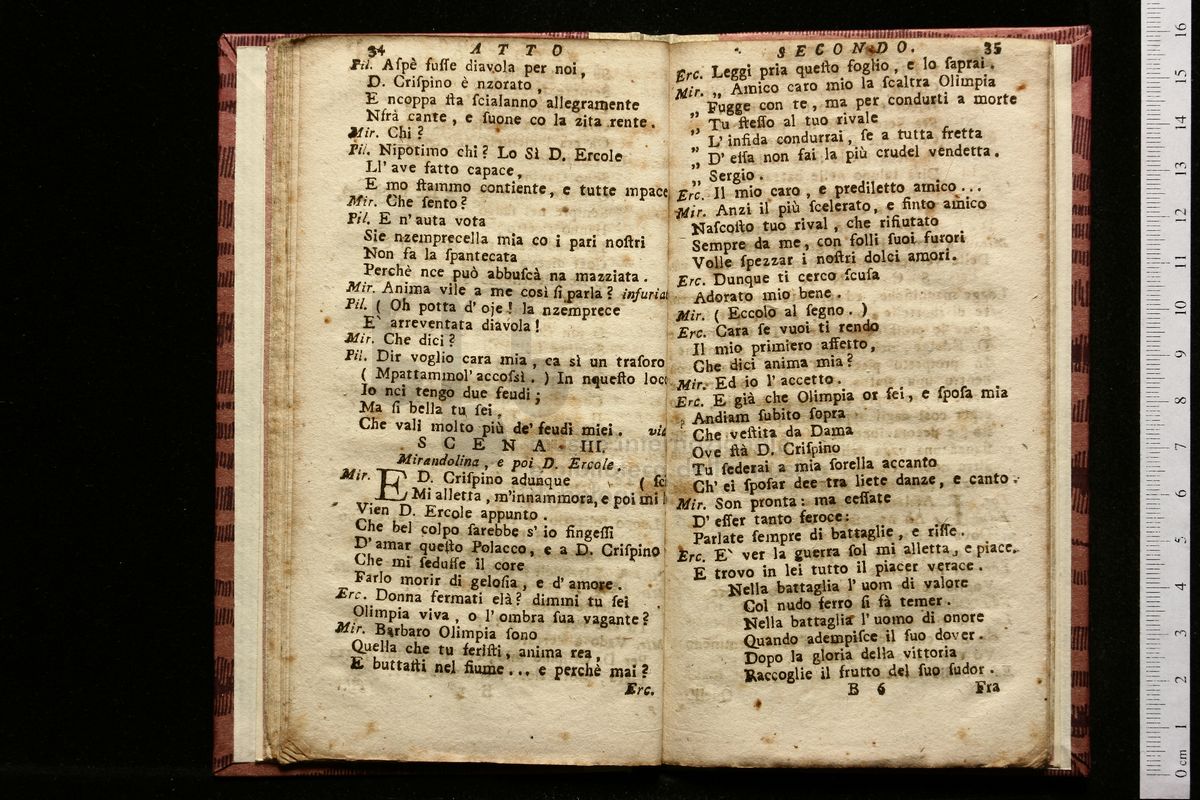 34 ATTO
Pil. Aſpè fuſſe diavola per noi,
D. Criſpino è nzorato,
E ncoppa ſta ſcialanno allegramente
Nfrà cante, e ſuone co la zita rente.
Mir. Chi?
Pil. Nipotimo chi? Lo Sì D. Ercole
Ll' ave fatto capace,
E mo ſtammo contiente, e tutte mpace
Mir. Che ſento?
Pil. E n' auta vota
Sie nzemprecella mia co i pari noſtri
Non fa la ſpantecata
Perchè nce può abbuſcà na mazziata.
Mir. Anima vile a me così ſi parla? infuriat
Pil. ( Oh potta d' oje! la nzemprece
E' arreventata diavola!
Mir. Che dici?
Pil. Dir voglio cara mia, ca sì un traſoro
( Mpattammol' accoſsì. ) In nqueſto loco
Io nci tengo due feudi;
Ma ſi bella tu ſei,
Che vali molto più de' feudi miei. via
SCENA III.
Mirandolina, e poi D. Ercole.
Mir. E D. Criſpino adunque ( ſci
Mi alletta, m'innammora, e poi mi l
Vien D. Ercole appunto.
Che bel colpo ſarebbe s' io fingeſſi
D' amar queſto Polacco, e a D. Criſpino
Che mi ſeduſſe il core
Farlo morir di geloſia, e d' amore.
Erc. Donna fermati elà? dimmi tu ſei
Olimpia viva, o l' ombra ſua vagante?
Mir. Barbaro Olimpia ſono
Quella che tu feriſti, anima rea,
E buttaſti nel fiume... e perchè mai?
Erc.
SECONDO. 35
Erc. Leggi pria queſto foglio, e lo ſaprai.
Mir. „ Amico caro mio la ſcaltra Olimpia
„ Fugge con te, ma per condurti a morte
„ Tu ſteſſo al tuo rivale
„ L' infida condurrai, ſe a tutta fretta
„ D' eſſa non fai la più crudel vendetta.
„ Sergio.
Erc. Il mio caro, e prediletto amico...
Mir. Anzi il più ſcelerato, e finto amico
Naſcoſto tuo rival, che rifiutato
Sempre da me, con folli ſuoi furori
Volle ſpezzar i noſtri dolci amori.
Erc. Dunque ti cerco ſcuſa
Adorato mio bene.
Mir. ( Eccolo al ſegno. )
Erc. Cara ſe vuoi ti rendo
Il mio primiero affetto,
Che dici anima mia?
Mir. Ed io l' accetto.
Erc. E già che Olimpia or ſei, e ſpoſa mia
Andiam ſubito ſopra
Che veſtita da Dama
Ove ſtà D. Criſpino
Tu ſederai a mia ſorella accanto
Ch' ei ſpoſar dee tra liete danze, e canto.
Mir. Son pronta: ma ceſſate
D' eſſer tanto feroce:
Parlate ſempre di battaglie, e riſſe.
Erc. E` ver la guerra ſol mi alletta, e piace,
E trovo in lei tutto il piacer verace.
Nella battaglia l' uom di valore
Col nudo ferro ſi fà temer.
Nella battaglia l' uomo di onore
Quando adempiſce il ſuo dover.
Dopo la gloria della vittoria
Raccoglie il frutto del ſuo ſudor.
B 6 Fra